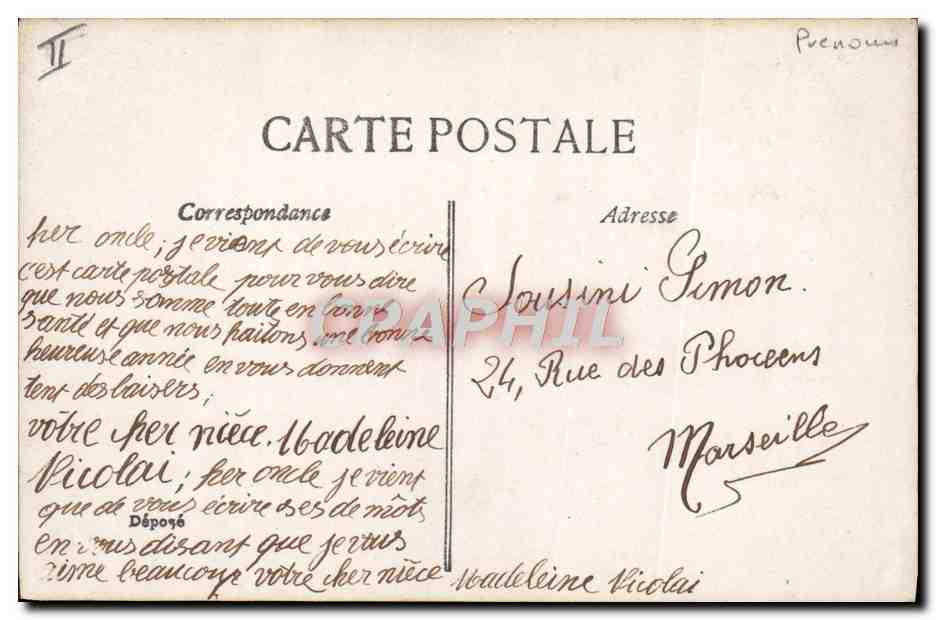 II
Prenoms
CARTE POSTALE
Correspondance
Adresse
her oncle, je vient de vous écrire
c'est carte postale pour vous dire
que nous somme toute en bonne
santé et que nous haitons une bonne
heureuse année en vous donnent
tent des baisers,
vôtre her nièce. Madeleine
Nicolai; her oncle je vient
que de vous écrire ses de môts
Déposé
en vous disant que je vus
aime beaucoup votre her nièce Madeleine Nicolai
Sousini Simon.
24, Rue des Phoceens
Marseille
CRAPHIL